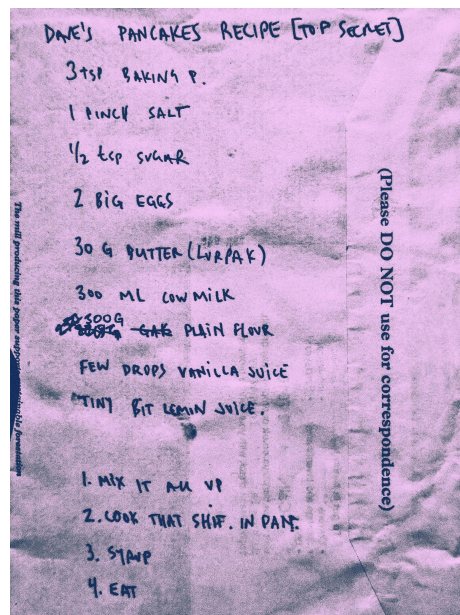 DAVE'S PANCAKES RECIPE [TOP SECRET]
3 tsp BAKING P.
1 PINCH SALT
1/2 tsp SUGAR
2 BIG EGGS
30 G BUTTER (LURPAK)
300 ML COW MILK
300G PLAIN FLOUR
FEW DROPS VANILLA JUICE
TINY BIT LEMON JUICE.
1. MIX IT ALL UP
2. COOK THAT SHIT. IN PAN.
3. SYRUP
4. EAT
(Please DO NOT use for correspondence)
The mill producing this paper